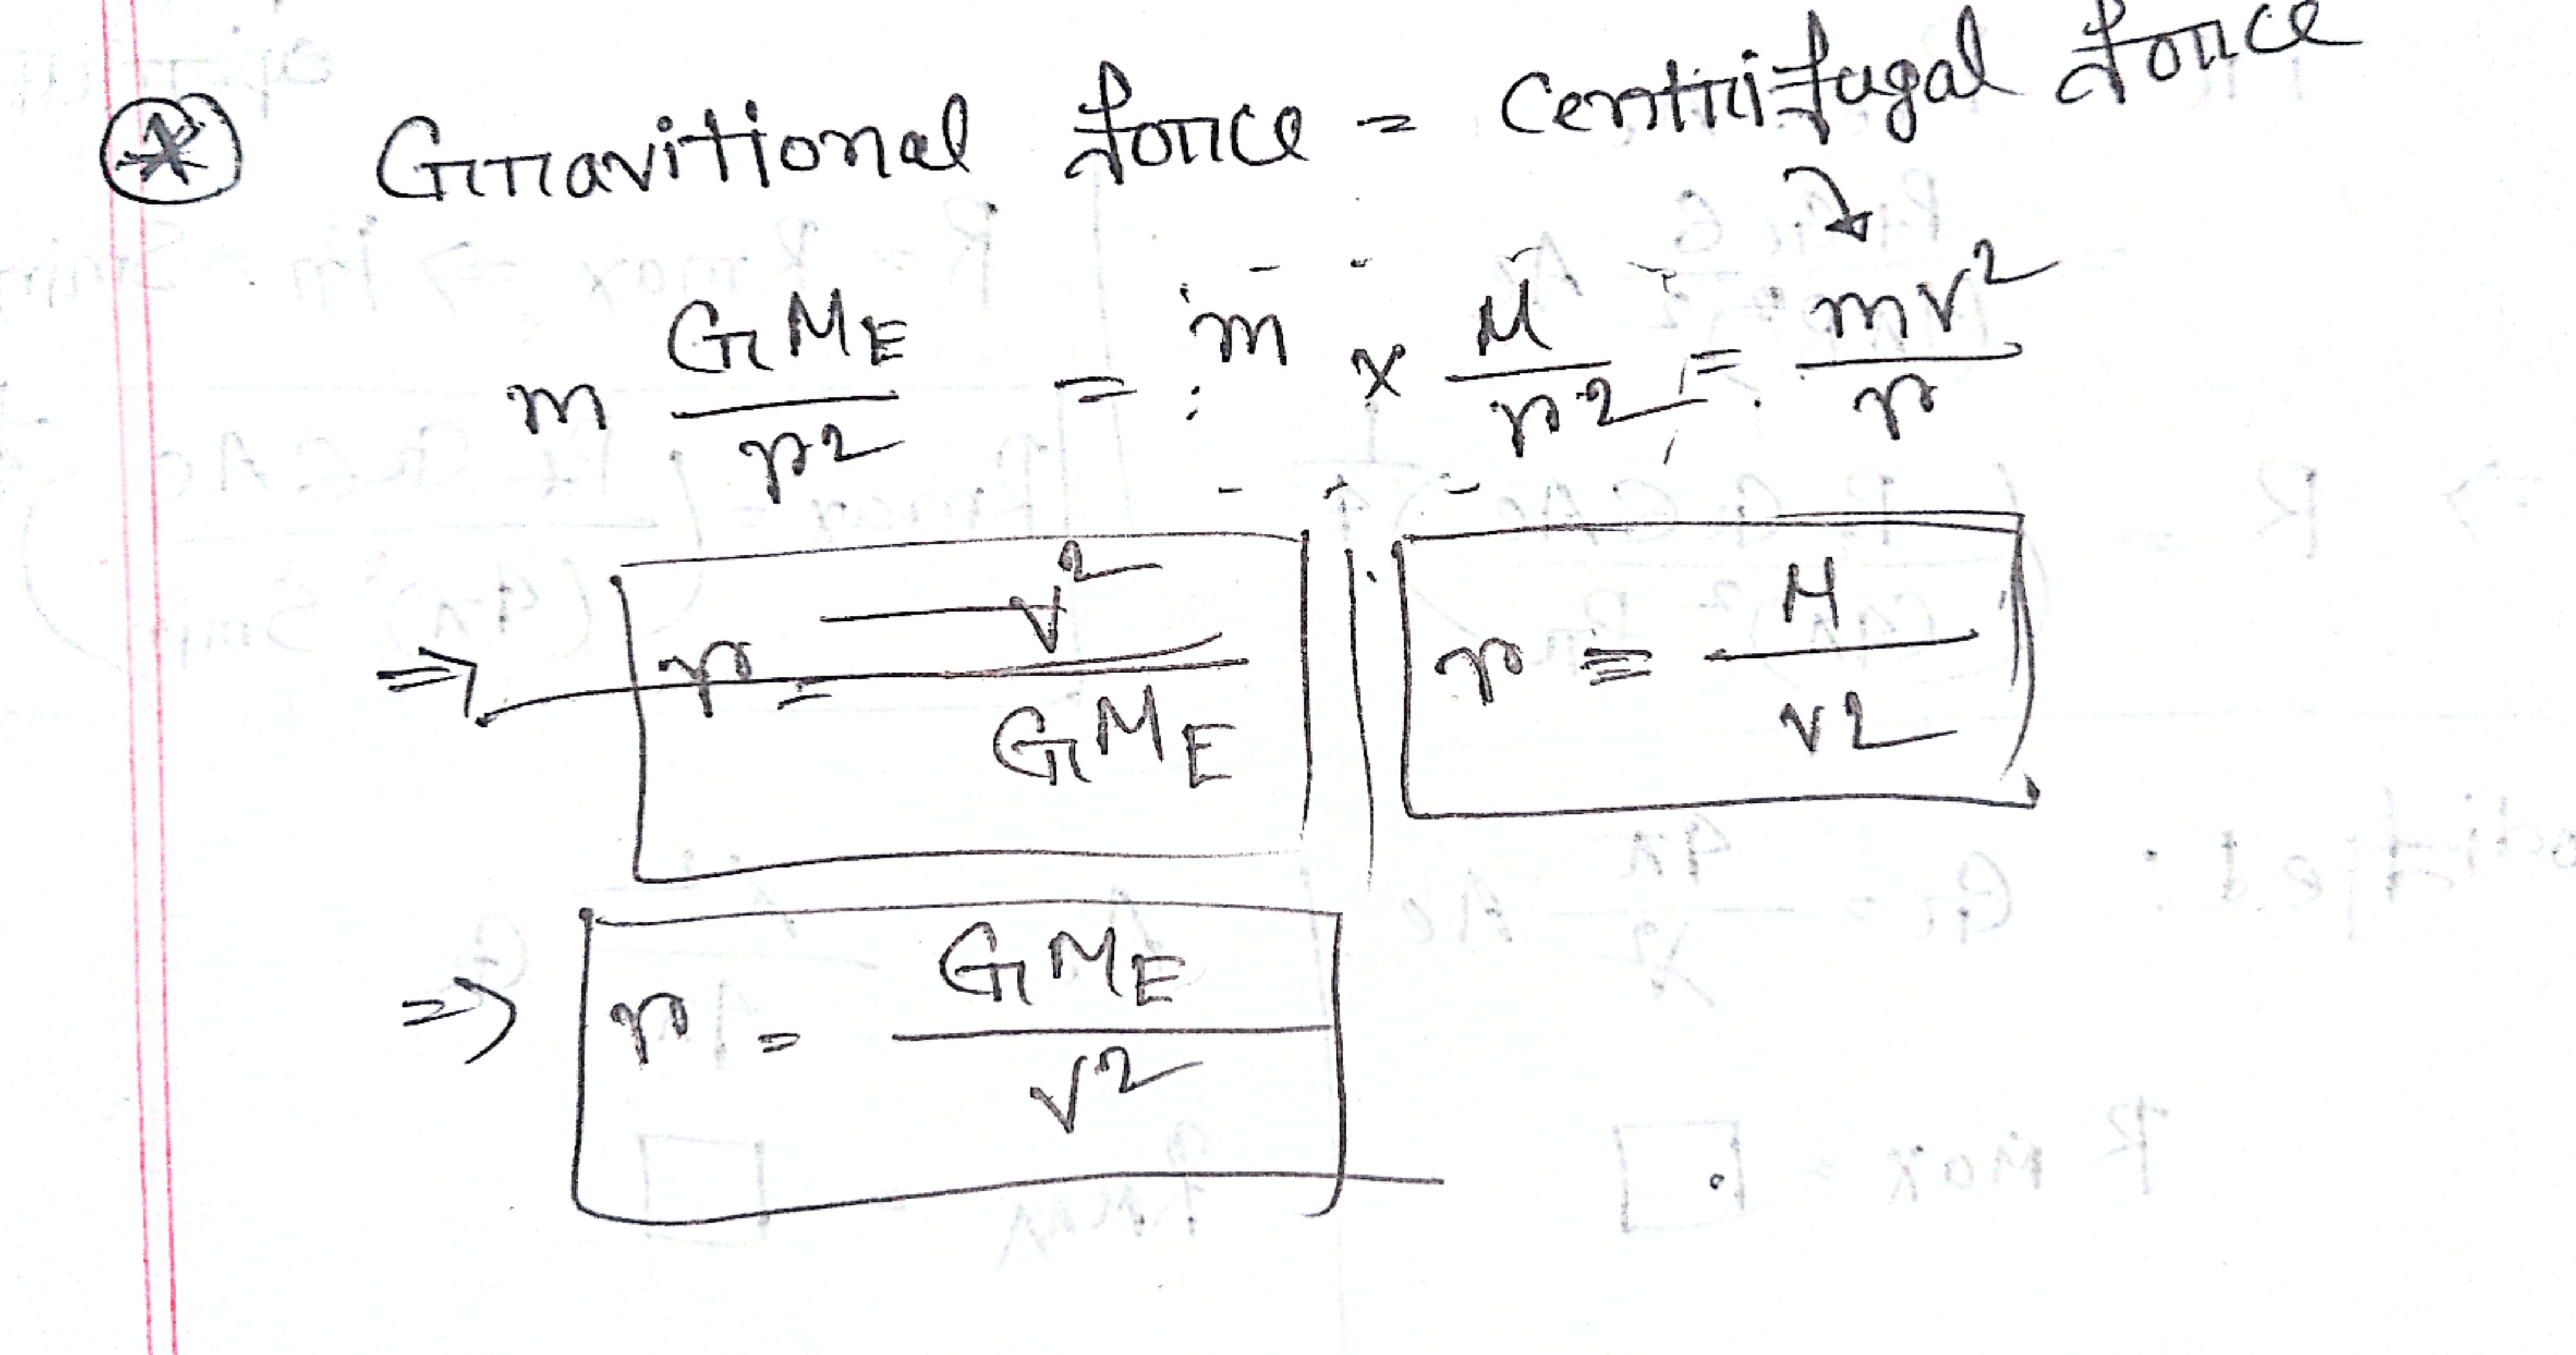 Gravitional force = Centrifugal force
m GM_E / r² = m × M / r² = mv² / r
⇒ r = v² / GM_E || r = M / v²
⇒ r = GM_E / v²